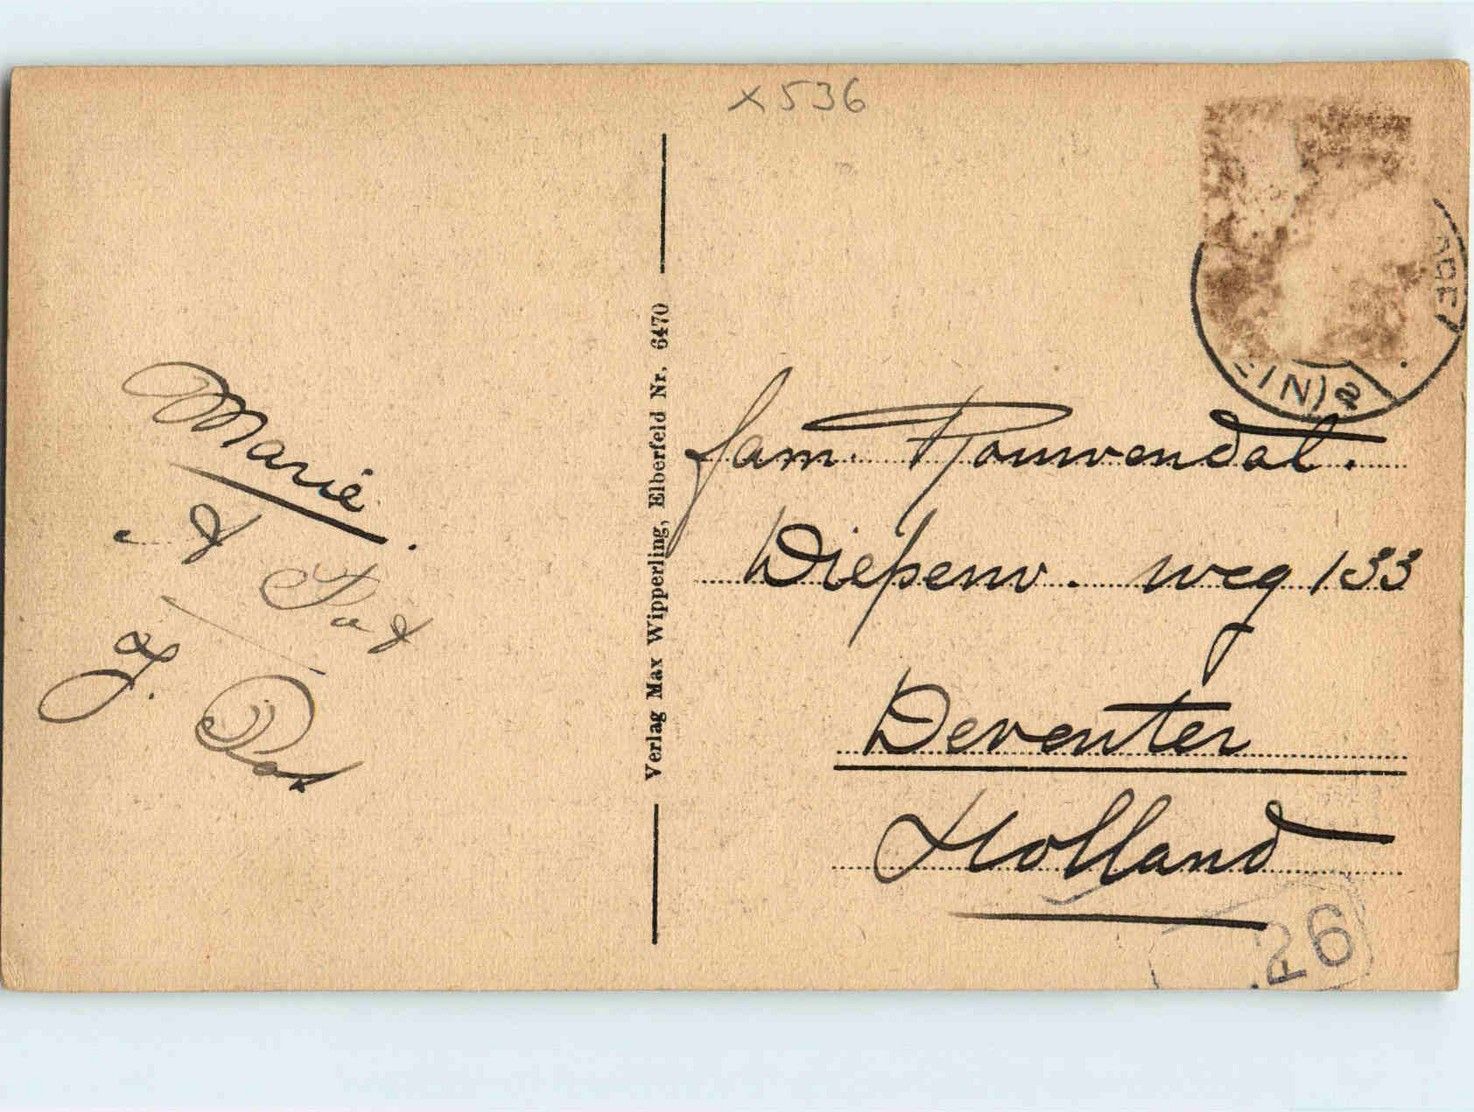 x536
Marie
J. Pos
Verlag Max Wipperling, Elberfeld Nr. 6470
fam. Rouwendal.
Diepenv. weg 133
Deventer
Holland